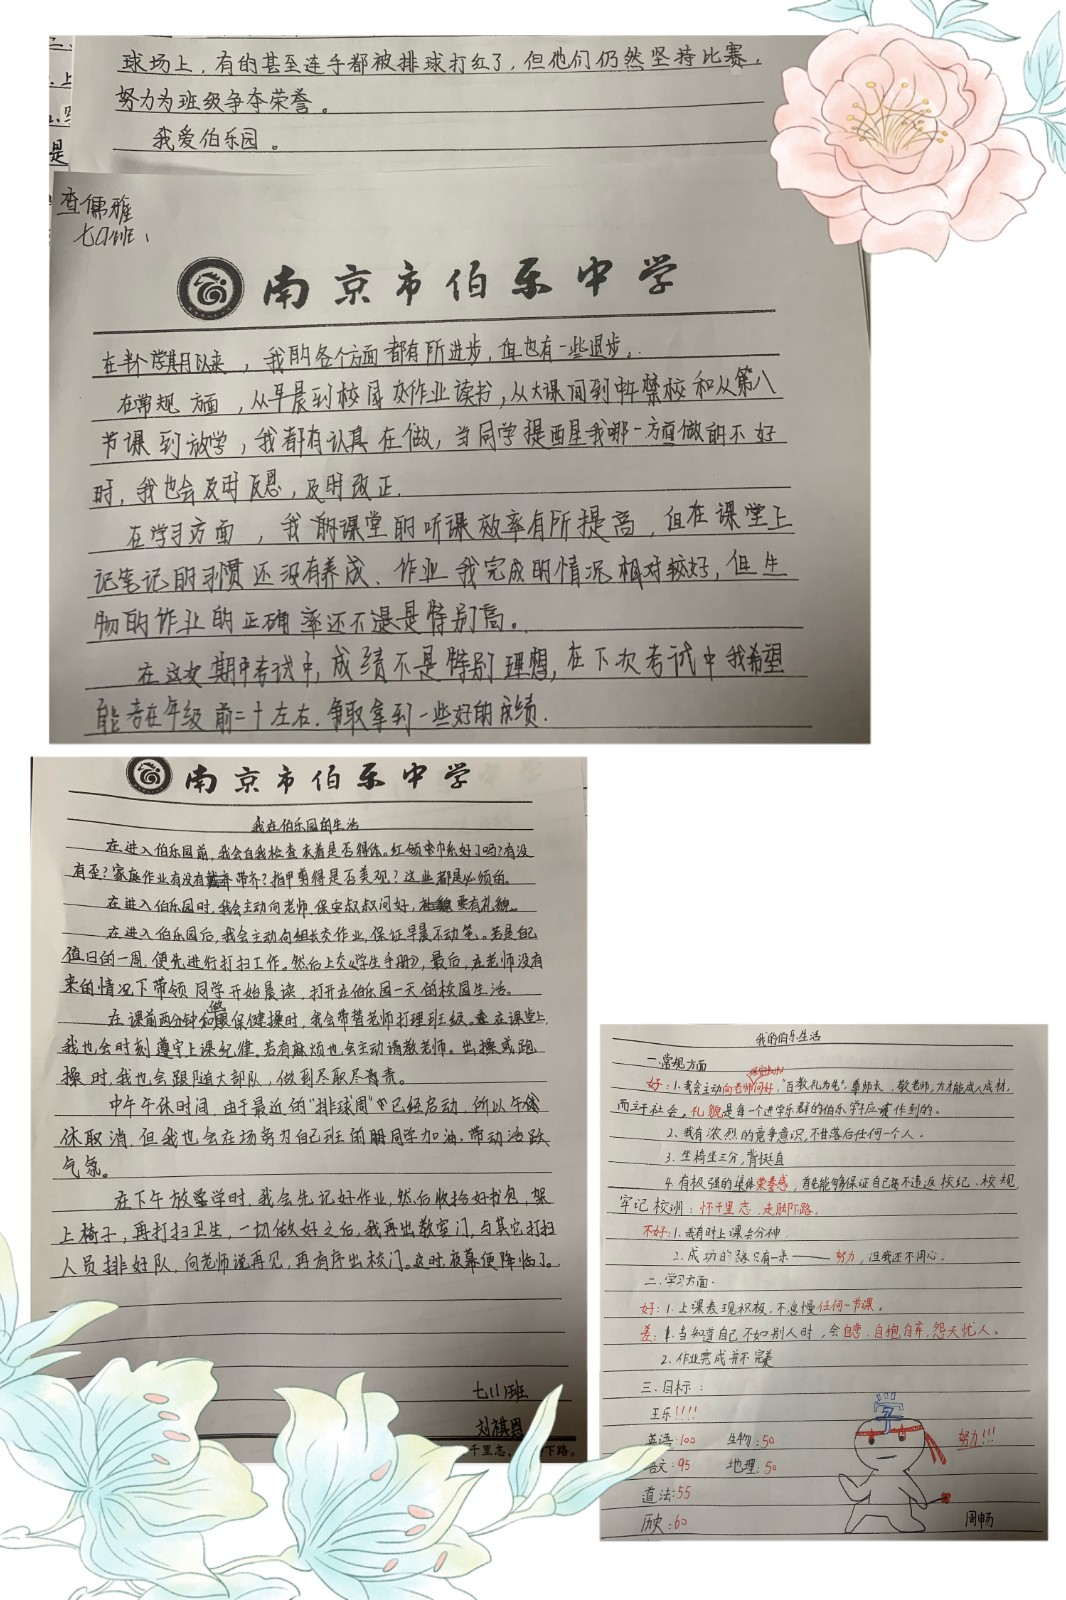 球场上，有的甚至连手都被排球打红了，但他们仍然坚持比赛，
努力为班级争夺荣誉。
我爱伯乐园。
查儒雅
南京市伯乐中学
在半个学期以来，我的各个方面都有所进步，但也有一些退步。
在常规方面，从早晨到校园交作业读书，从大课间到中午禁校和从第八
节课到放学，我都有认真在做，当同学提醒我哪一方面做的不好
时，我也会及时反思，及时改正.
在学习方面，我的课堂的听课效率有所提高，但在课堂上
记笔记的习惯还没有养成、作业我完成的情况相对较好，但生
物的作业的正确率还不是特别高。
在这次期中考试中，成绩不是特别理想，在下次考试中我希望
能考在年级前二十左右.争取拿到一些好的成绩.
南京市伯乐中学
我在伯乐园的生活
在进入伯乐园前，我会自我检查衣着是否得体。红领巾系好了吗？有没
有歪？家庭作业有没有带齐？指甲剪得是否美观？这些都是必须的。
在进入伯乐园时，我会主动向老师、保安叔叔问好，要有礼貌。
在进入伯乐园后，我会主动向组长交作业，保证早晨不动笔。若是自己
值日的一周，便先进行打扫工作。然后上交《学生手册》，最后，在老师没有
来的情况下带领同学开始晨读，打开在伯乐园一天的校园生活。
在课前两分钟和做眼保健操时，我会帮替老师打理班级。在课堂上，
我也会时刻遵守上课纪律。若有麻烦也会主动请教老师。出操或跑
操时，我也会跟随大部队，做到尽职尽责。
中午午休时间，由于最近的“排球周”已经启动，所以午
休取消，但我也会在场旁为自己班的同学加油，带动活跃
气氛。
在下午放学时，我会先记好作业，然后收拾好书包，架
上椅子，再打扫卫生，一切做好之后，我再出教室门，与其它打扫
人员排好队，向老师说再见，再有序出校门。这时，夜幕便降临了。
七（1）班
刘祺恩
千里志，下路。
我的伯乐生活
一.常规方面
好：1.我会主动向老师问好，“百教礼为先”.尊师长，敬老师，方才能成人成材，
而立于社会。礼貌是每一个进学乐群的伯乐学子应作到的。
2.我有浓烈的竞争意识，不甘落后任何一个人.
3.坐椅坐三分，背挺直
4.有极强的集体荣誉感，首先能够保证自己每不违返校纪、校规
牢记校训：怀千里志，走脚下路。
不好：1.我有时上课会分神.
2.成功的路只有一条——努力，但我还不用心.
二.学习方面.
好：1.上课表现积极，不怠慢任何一节课。
差：1.当知道自己不如别人时，会自卑、自抱自弃，怨天忧人。
2.作业完成并不完美
三.目标：
王乐！！！！
英语：100 生物：50
语文：95 地理：50
道法：55
历史：60
努力！！！
周畅